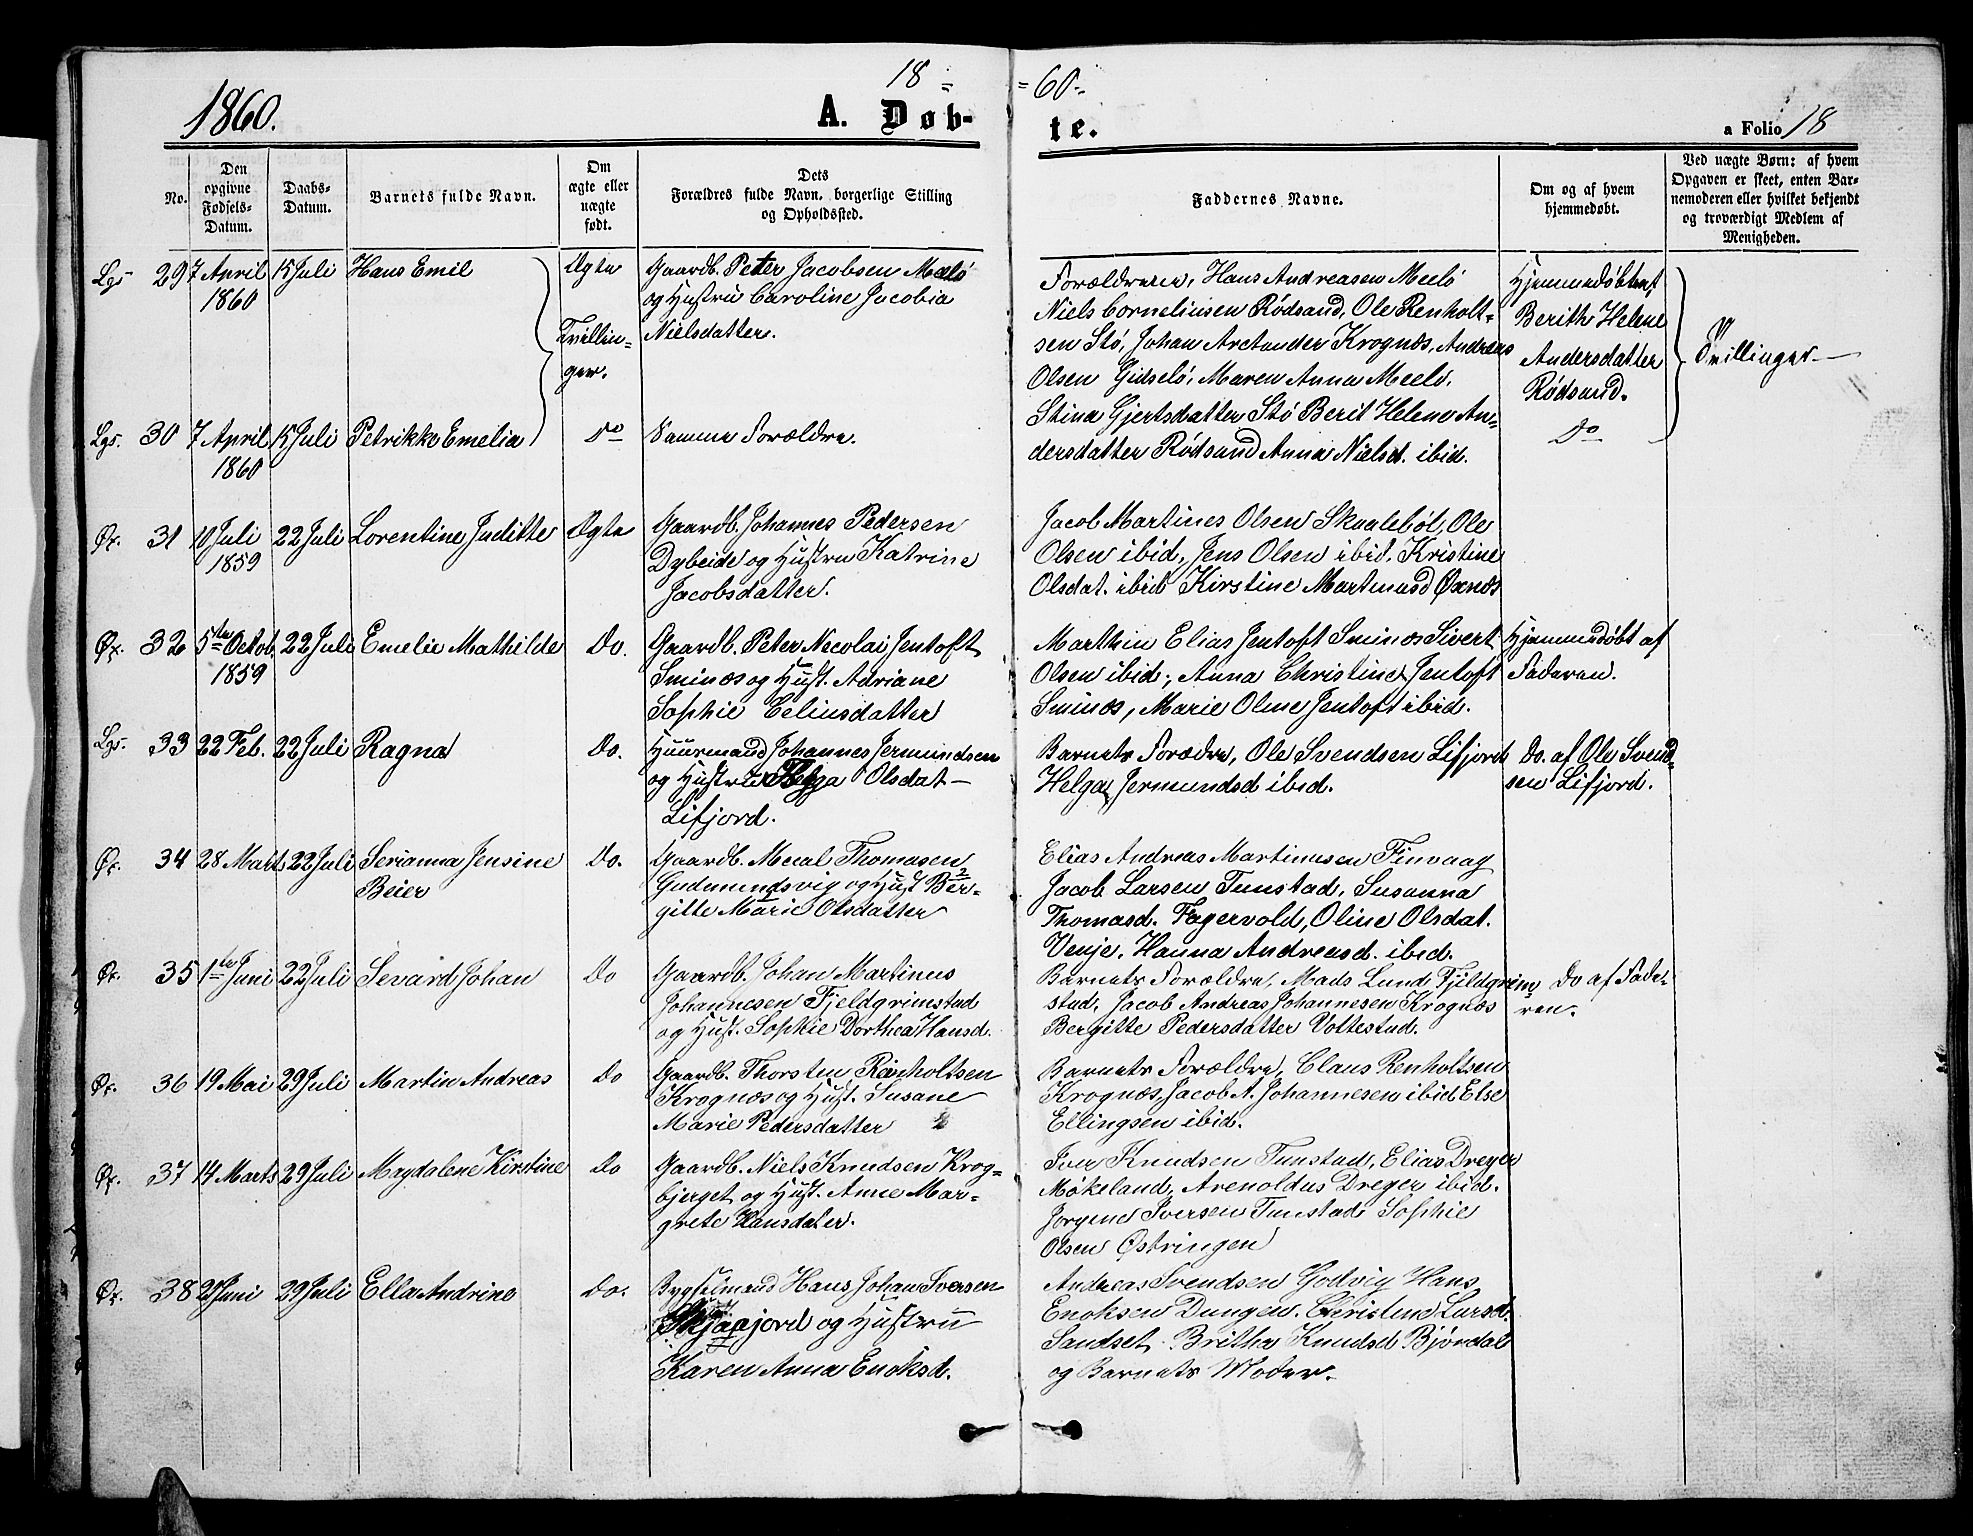 1860.
18 = = 60.
A. Døb-te.
a Folio 18
No.
Den opgivne Fødsels-Datum.
Daabs-Datum.
Barnets fulde Navn.
Om ægte eller uægte født.
Dets Forældres fulde Navn, borgerlige Stilling og Opholdssted.
Faddernes Navne.
Om og af hvem hjemmedøbt.
Ved uægte Børn: af hvem Opgaven er skeet, enten Barnemoderen eller hvilket bekjendt og troværdigt Medlem af Menigheden.
Lgs 29 7 April 1860 15 Juli Hans Emil Ægte
Tvillin-
ger.
Gaardb. Peter Jacobsen Meelö
og Hustru Caroline Jacobia
Nielsdatter.
Forældrene, Hans Andreasen Meelö
Niels Corneliusen Rødsand, Ole Renholt-
sen Stö, Johan Arctander Krognæs, Andreas
Olsen Gidselö, Maren Anna Meelö.
Stina Gjertsdatter Stö Berit Helene An-
dersdatter Rødsand Anna Nielsd. ibid.
Hjemmedøbt af
Berith Helene
Andersdatter
Rødsand.
Tvillinger
Lgs. 30 7 April 1860 15 Juli Petrikke Emelia Do Samme Forældre. Do
Øx. 31 10 Juli 1859 22 Juli Lorentine Juditte Ægte
Gaardb. Johannes Pedersen
Dybeide og Hustru Katrine
Jacobsdatter.
Jacob Martines Olsen Skaalebøl, Ole
Olsen ibid, Jens Olsen ibid, Kristine
Olsdat. ibid Kirstine Martinusd Øxnæs
Øx. 32 5te Octob. 1859 22 Juli Emelie Mathilde Do.
Gaardb. Peter Necolai Jentoft
Sminæs og Hust. Adriane
Sophie Eeliusdatter
Marthin Elias Jentoft Sminæs Sivert
Olsen ibid; Anna Christine Jentoft
Sminæs, Marie Oline Jentoft ibid.
Hjemmedøbt af
Faderen.
Lgs. 33 22 Feb. 22 Juli Ragna Do.
Huusmand Johannes Jermundsen
og Hustru Helga Olsdat
Lifjord.
Barnets Forældre, Ole Svendsen Lifjord
Helga Jermundsd ibid.
Do. af Ole Svend-
sen Lifjord.
Øx. 34 28 Marts 22 Juli Serianna Jensine
Beier Do.
Gaardb. Thomasen
Gudmundsvig og Hust Ber-
gitte Marie Olsdatter
Elias Andreas Martinusen Finvaag
Jacob Larsen Tunstad, Susanna
Thomasd. Fagervold, Oline Olsdat.
Venje. Hanna Andreasd. ibid.
Øx. 35 1te Juni 22 Juli Sevard Johan Do
Gaardb. Johan Martinus
Johannesen Fjeldgrimstad
og Hust. Sophie Dorthea Hansd.
Barnets Forældre, Mads Lund Fjeldgrim-
stad. Jacob Andreas Johannesen Krognæs
Bergitte Pedersdatter Vottestad.
Do af Fade-
ren.
Øx. 36 19 Mai 29 Juli Martin Andreas Do
Gaardb. Thorsten Rønholtsen
Krognæs og Hust. Susane
Marie Pedersdatter
Barnets Forældre, Claus Renholtsen
Krognæs, Jacob A. Johannesen ibid Else
Ellingsen ibid.
Øx. 37 14 Marts 29 Juli Magdalene Kirstine Do
Gaardb. Niels Knudsen Krog-
bjerget og Hust. Anne Mar-
grete Hansdater.
Iver Knudsen Tunstad, Elias Dreyer
Møkeland, Arenoldus Dreyer ibid.
Jørgine Iversen Tunstad Sophie
Olsen Østringen
Øx. 38 2 Juni 29 Juli Ella Andrine Do.
Bygselmand Hans Johan Iversen
Skjaafjord og Hustru
Karen Anna Enoksd.
Andreas Svendsen Godvig Hans
Enoksen Dungen. Christine Larsd.
Sandset. Britha Knudsd Bjørndal
og Barnets Moder.